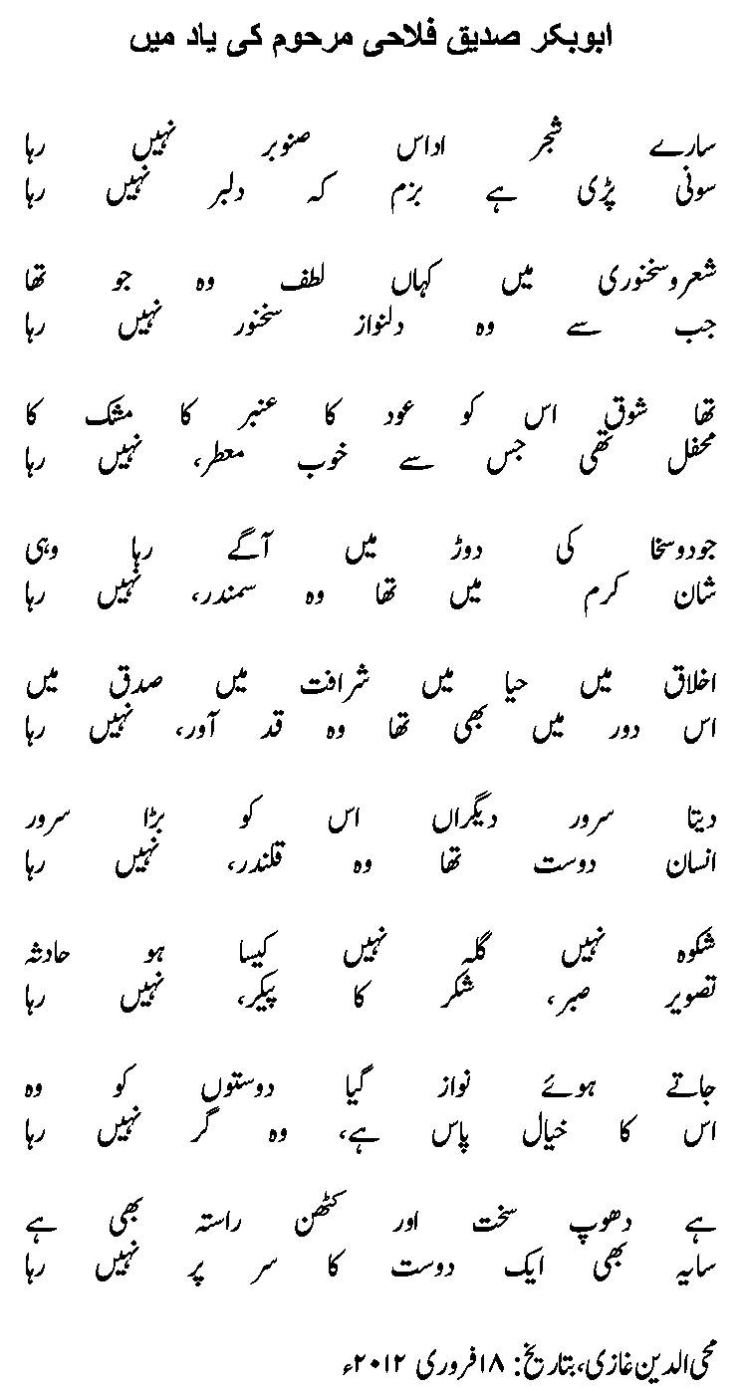 ابوبکر صدیق فلاحی مرحوم کی یاد میں
سارے شجر اداس صنوبر نہیں رہا
سونی پڑی ہے بزم کہ دلبر نہیں رہا
شعروسخنوری میں کہاں لطف وہ جو تھا
جب سے وہ دلنواز سخنور نہیں رہا
تھا شوق اس کو عود کا عنبر کا مشک کا
محفل تھی جس سے خوب معطر، نہیں رہا
جودوسخا کی دوڑ میں آگے رہا وہی
شان کرم میں تھا وہ سمندر، نہیں رہا
اخلاق میں حیا میں شرافت میں صدق میں
اس دور میں بھی تھا وہ قد آور، نہیں رہا
دیتا سرور دیگراں اس کو بڑا سرور
انسان دوست تھا وہ قلندر، نہیں رہا
شکوہ نہیں گلہ نہیں کیسا ہو حادثہ
تصویر صبر، شکر کا پیکر، نہیں رہا
جاتے ہوئے نواز گیا دوستوں کو وہ
اس کا خیال پاس ہے، وہ گر نہیں رہا
ہے دھوپ سخت اور کٹھن راستہ بھی ہے
سایہ بھی ایک دوست کا سر پر نہیں رہا
محی الدین غازی، بتاریخ: ۱۸فروری ۲۰۱۲ء